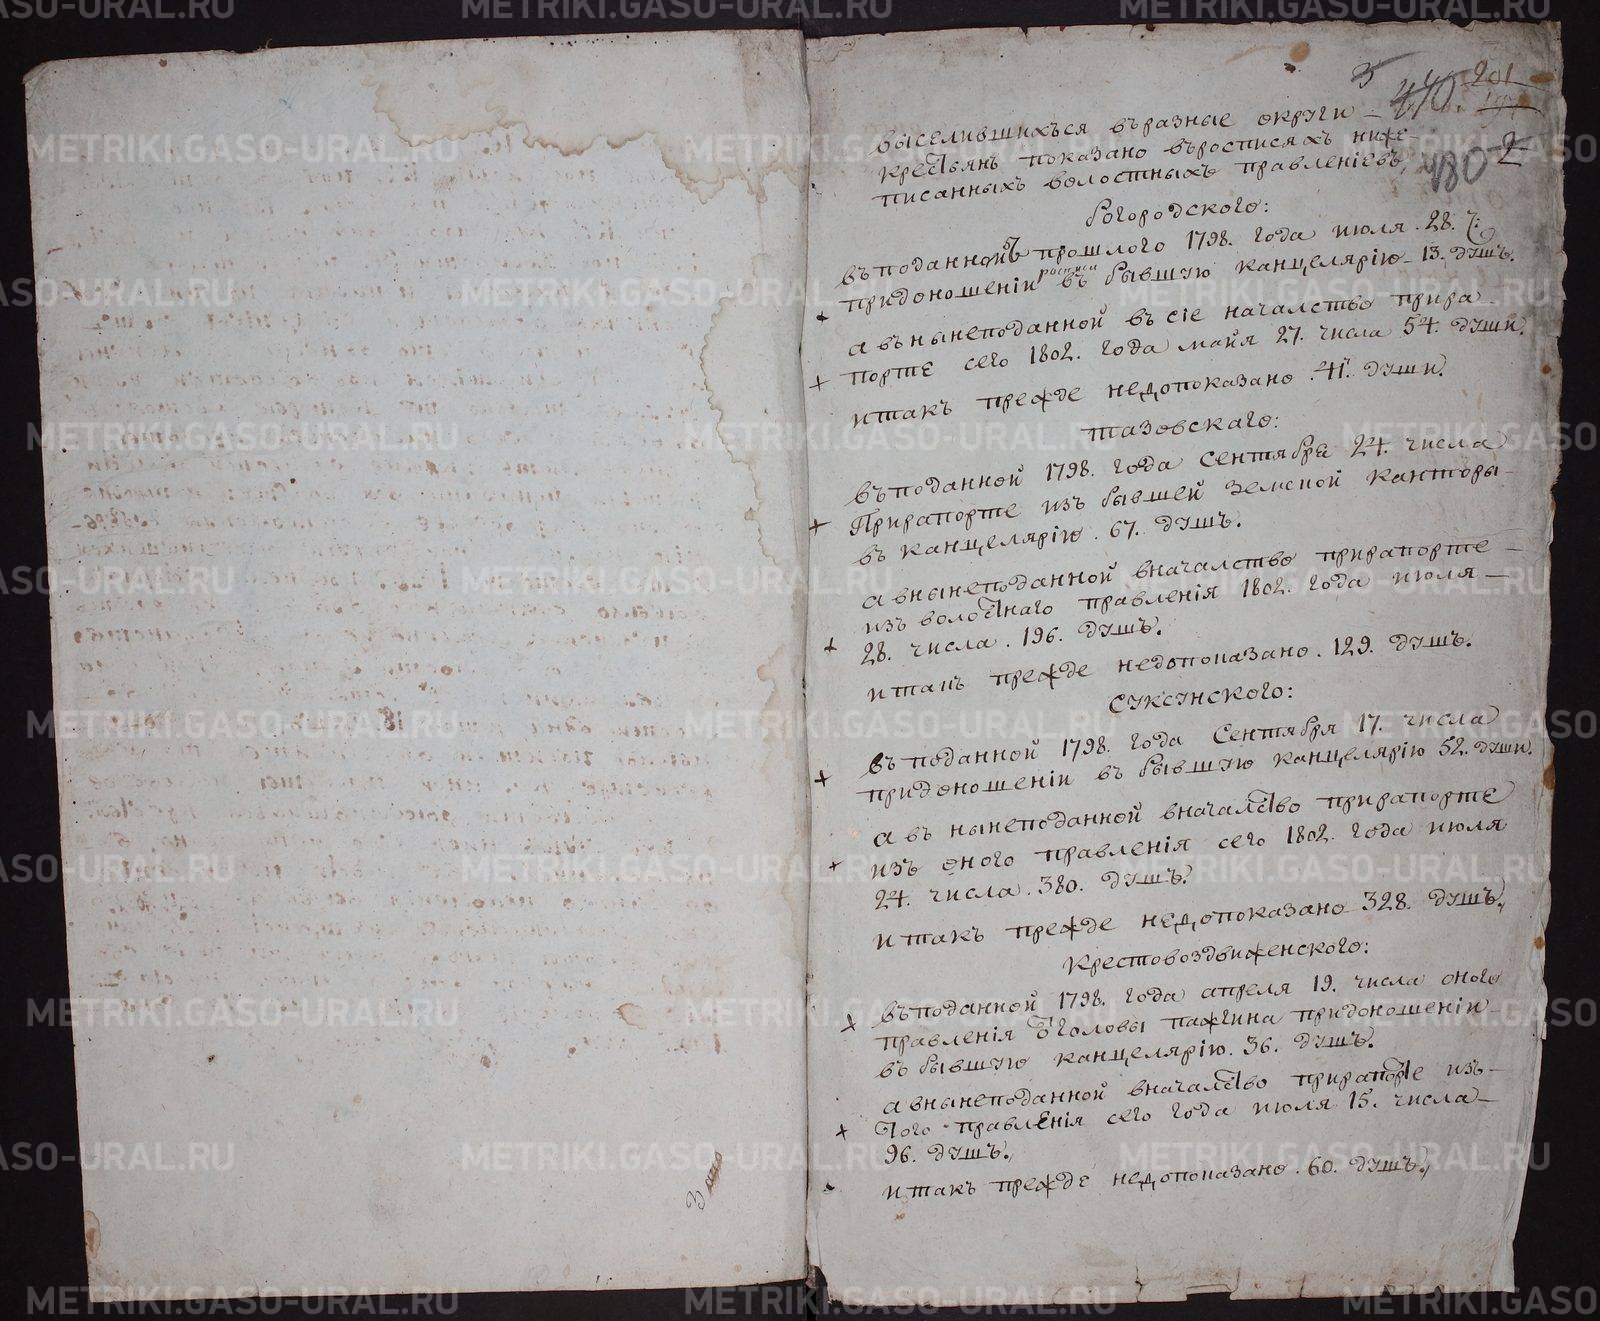 3 440. 201
выселившихъся въразные округи —
крестьянъ показано въросписяхъ ниже-
писанныхъ волостныхъ правленіевъ, 480 2
богородского:
въподанной прошлого 1798. года июля. 28. ч:
придоношеніи росписи въ бывшую канцелярію 13. душъ.
а въ нынеподанной въ сіе началство прира-
порте сего 1802. года майя 27. числа 54. души.
итакъ прежде недопоказано .41. души.
тазовскаго:
въподанной 1798. года сентября 24. числа
Прирапорте изъ бывшей земской канторы —
въ канцелярію . 67. душъ.
а внынеподанной вначалство прирапорте —
изъ волостнаго правленія 1802. года июля —
28. числа . 196. душъ.
итакъ прежде недопоказано . 129. душъ.
суксунского:
въподанной 1798. года Сентября 17. числа
придоношеніи въ бывшую канцелярію 52. души.
а въ нынеподанной вначалство прирапорте
изъ оного правленія сего 1802. года июля
24. числа . 380. душъ.
итакъ прежде недопоказано 328. душъ.
крестовоздвиженского:
въподанной 1798. года апреля 19. числа оного
правленія отголовы пажгина придоношеніи —
въ бывшую канцелярію. 36. душъ.
а внынеподанной вначалство прирапорте изъ —
того правленія сего года июля 15. числа —
96. душъ.
итакъ прежде недопоказано . 60. душъ.